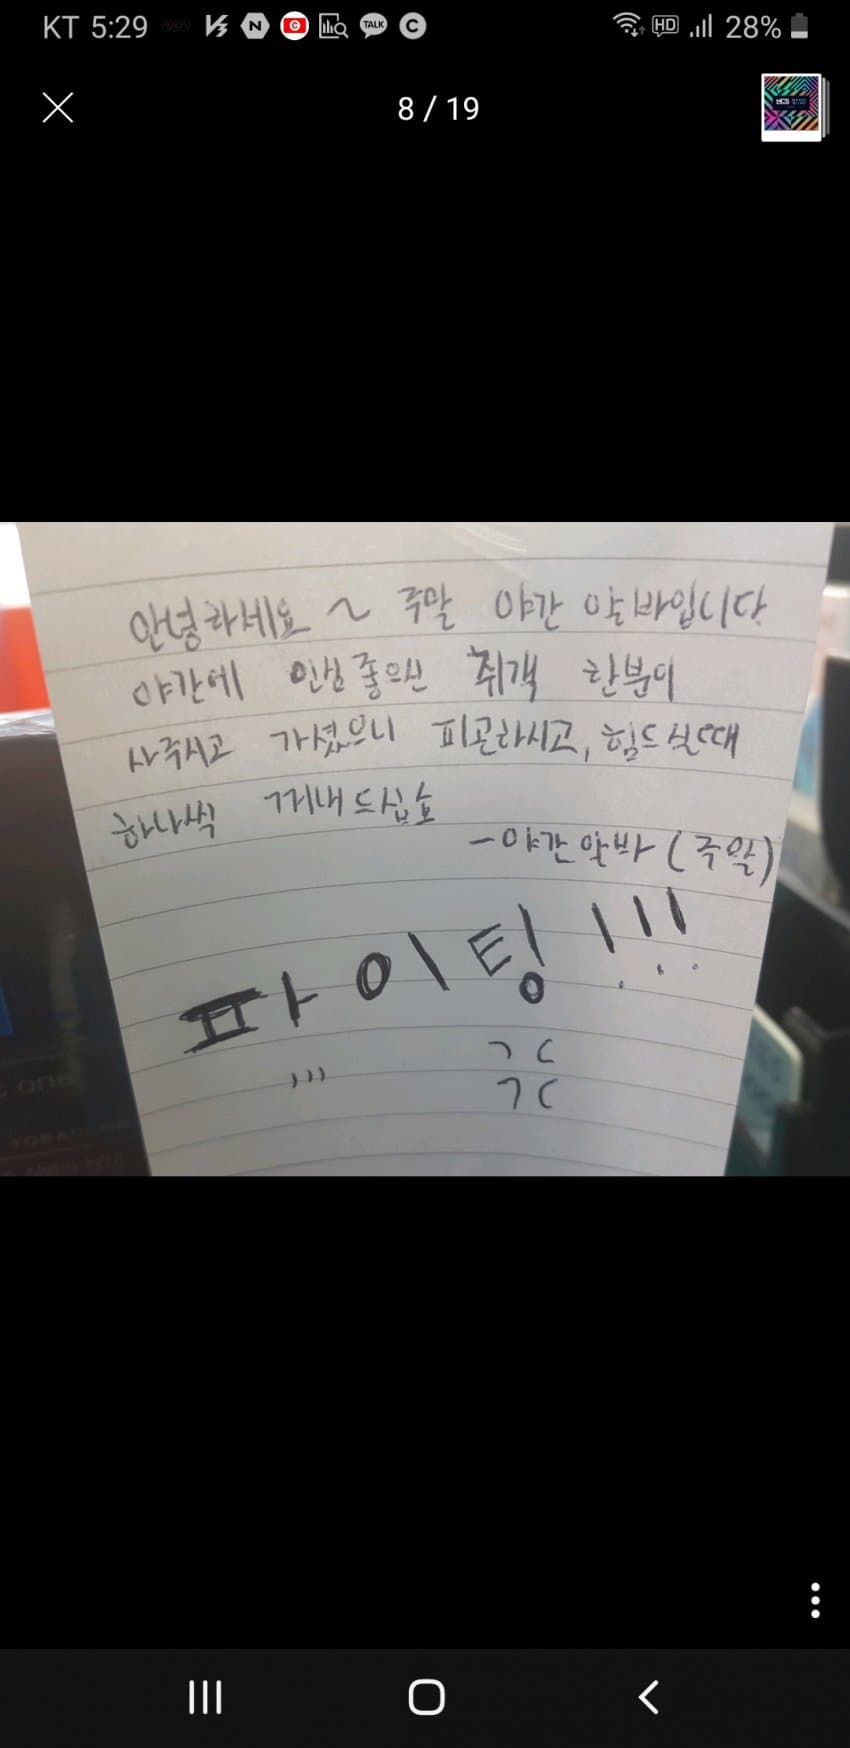 KT 5:29
TALK
HD
28%
8 / 19
안녕하세요 ~ 주말 야간 알바입니다
야간에 인상 좋으신 취객 한분이
사주시고 가셨으니 피곤하시고, 힘드실때
하나씩 꺼내드십쇼
-야간알바 (주말)
파이팅!!!
ㄱㄷ
ㄱㄷ